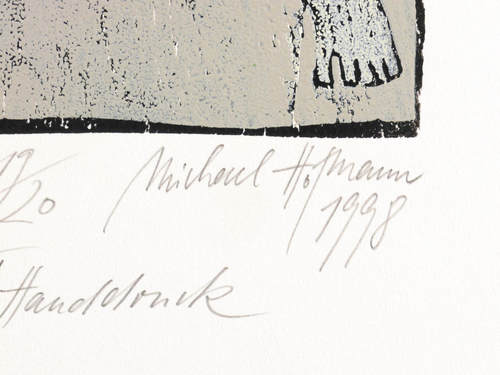 19/20 Michael Hofmann
1998
Handdruck